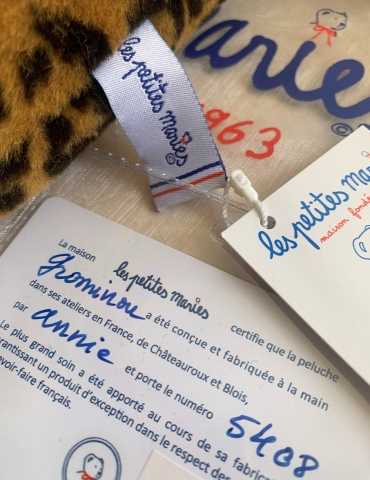 les petites maries
©
marie
©
1963
les petites mari
maison fondé
La maison
les petites maries
certifie que la peluche
grominou a été conçue et fabriquée à la main
dans ses ateliers en France, de Châteauroux et Blois,
par annie et porte le numéro 5408
Le plus grand soin a été apporté au cours de sa fabric
arantissant un produit d'exception dans le respect des
voir-faire français.